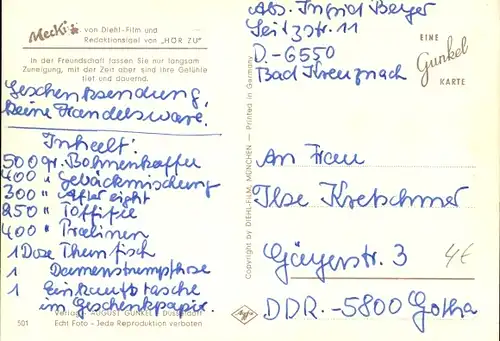 Mecki von Diehl-Film und
Redaktionsigel von „HÖR ZU"
In der Freundschaft fassen Sie nur langsam
Zuneigung, mit der Zeit aber sind Ihre Gefühle
tief und dauernd.
Geschenksendung,
keine Handelsware.
Inhalt:
500 gr. Bohnenkaffee
400 " Gebäckmischung
300 " After eight
250 " Toffifee
400 " Pralinen
1 Dose Thunfisch
1 Damenstrumpfhose
1 Einkaufstasche
im Geschenkpapier.
Verlag: AUGUST GUNKEL, DÜSSELDORF
501 Echt Foto - Jede Reproduktion verboten
Copyright by DIEHL-FILM, MÜNCHEN — Printed in Germany
Abs. Ingrid Berger
Seitzstr. 11
D.-6550
Bad Kreuznach
EINE
Gunkel
KARTE
An Frau
Ilse Kretschmer
Gayerstr. 3
4€
DDR.-5800 Gotha
Agfa